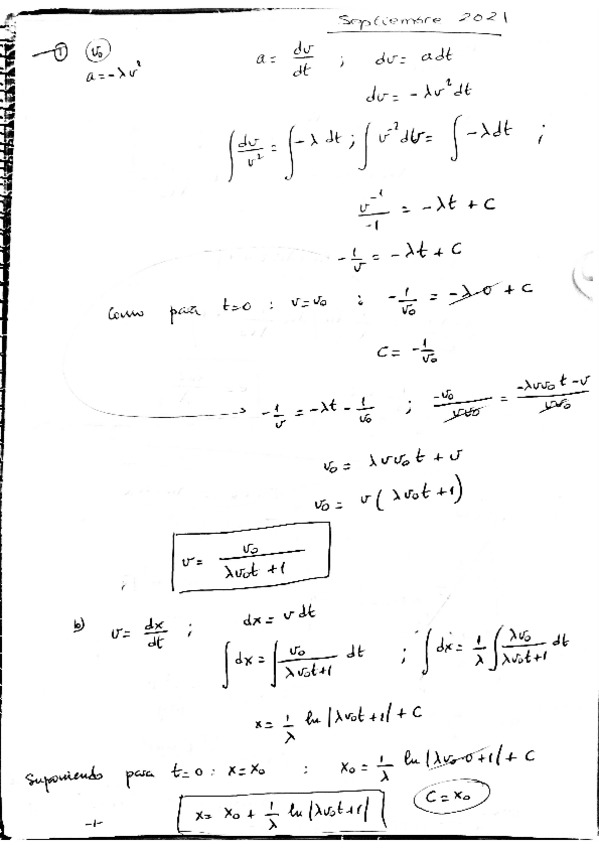 Septiembre 2021
① v₀ a = dv/dt ; dv = a dt
a = -λv² dv = -λv² dt
∫ dv/v² = ∫ -λ dt ; ∫ v⁻² dv = ∫ -λ dt ;
v⁻¹/-1 = -λt + C
-1/v = -λt + C
Como para t=0 : v=v₀ : -1/v₀ = -λ·0 + C
C = -1/v₀
-1/v = -λt - 1/v₀ ; -v₀/vv₀ = -λvv₀t - v/vv₀
v₀ = λvv₀t + v
v₀ = v(λv₀t + 1)
v = v₀/λv₀t + 1
b) v = dx/dt ; dx = v dt
∫ dx = ∫ v₀/λv₀t+1 dt ; ∫ dx = 1/λ ∫ λv₀/λv₀t+1 dt
x = 1/λ ln |λv₀t+1| + C
Suponiendo para t=0 : x=x₀ : x₀ = 1/λ ln |λv₀·0+1| + C
x = x₀ + 1/λ ln |λv₀t+1| C = x₀
-1-